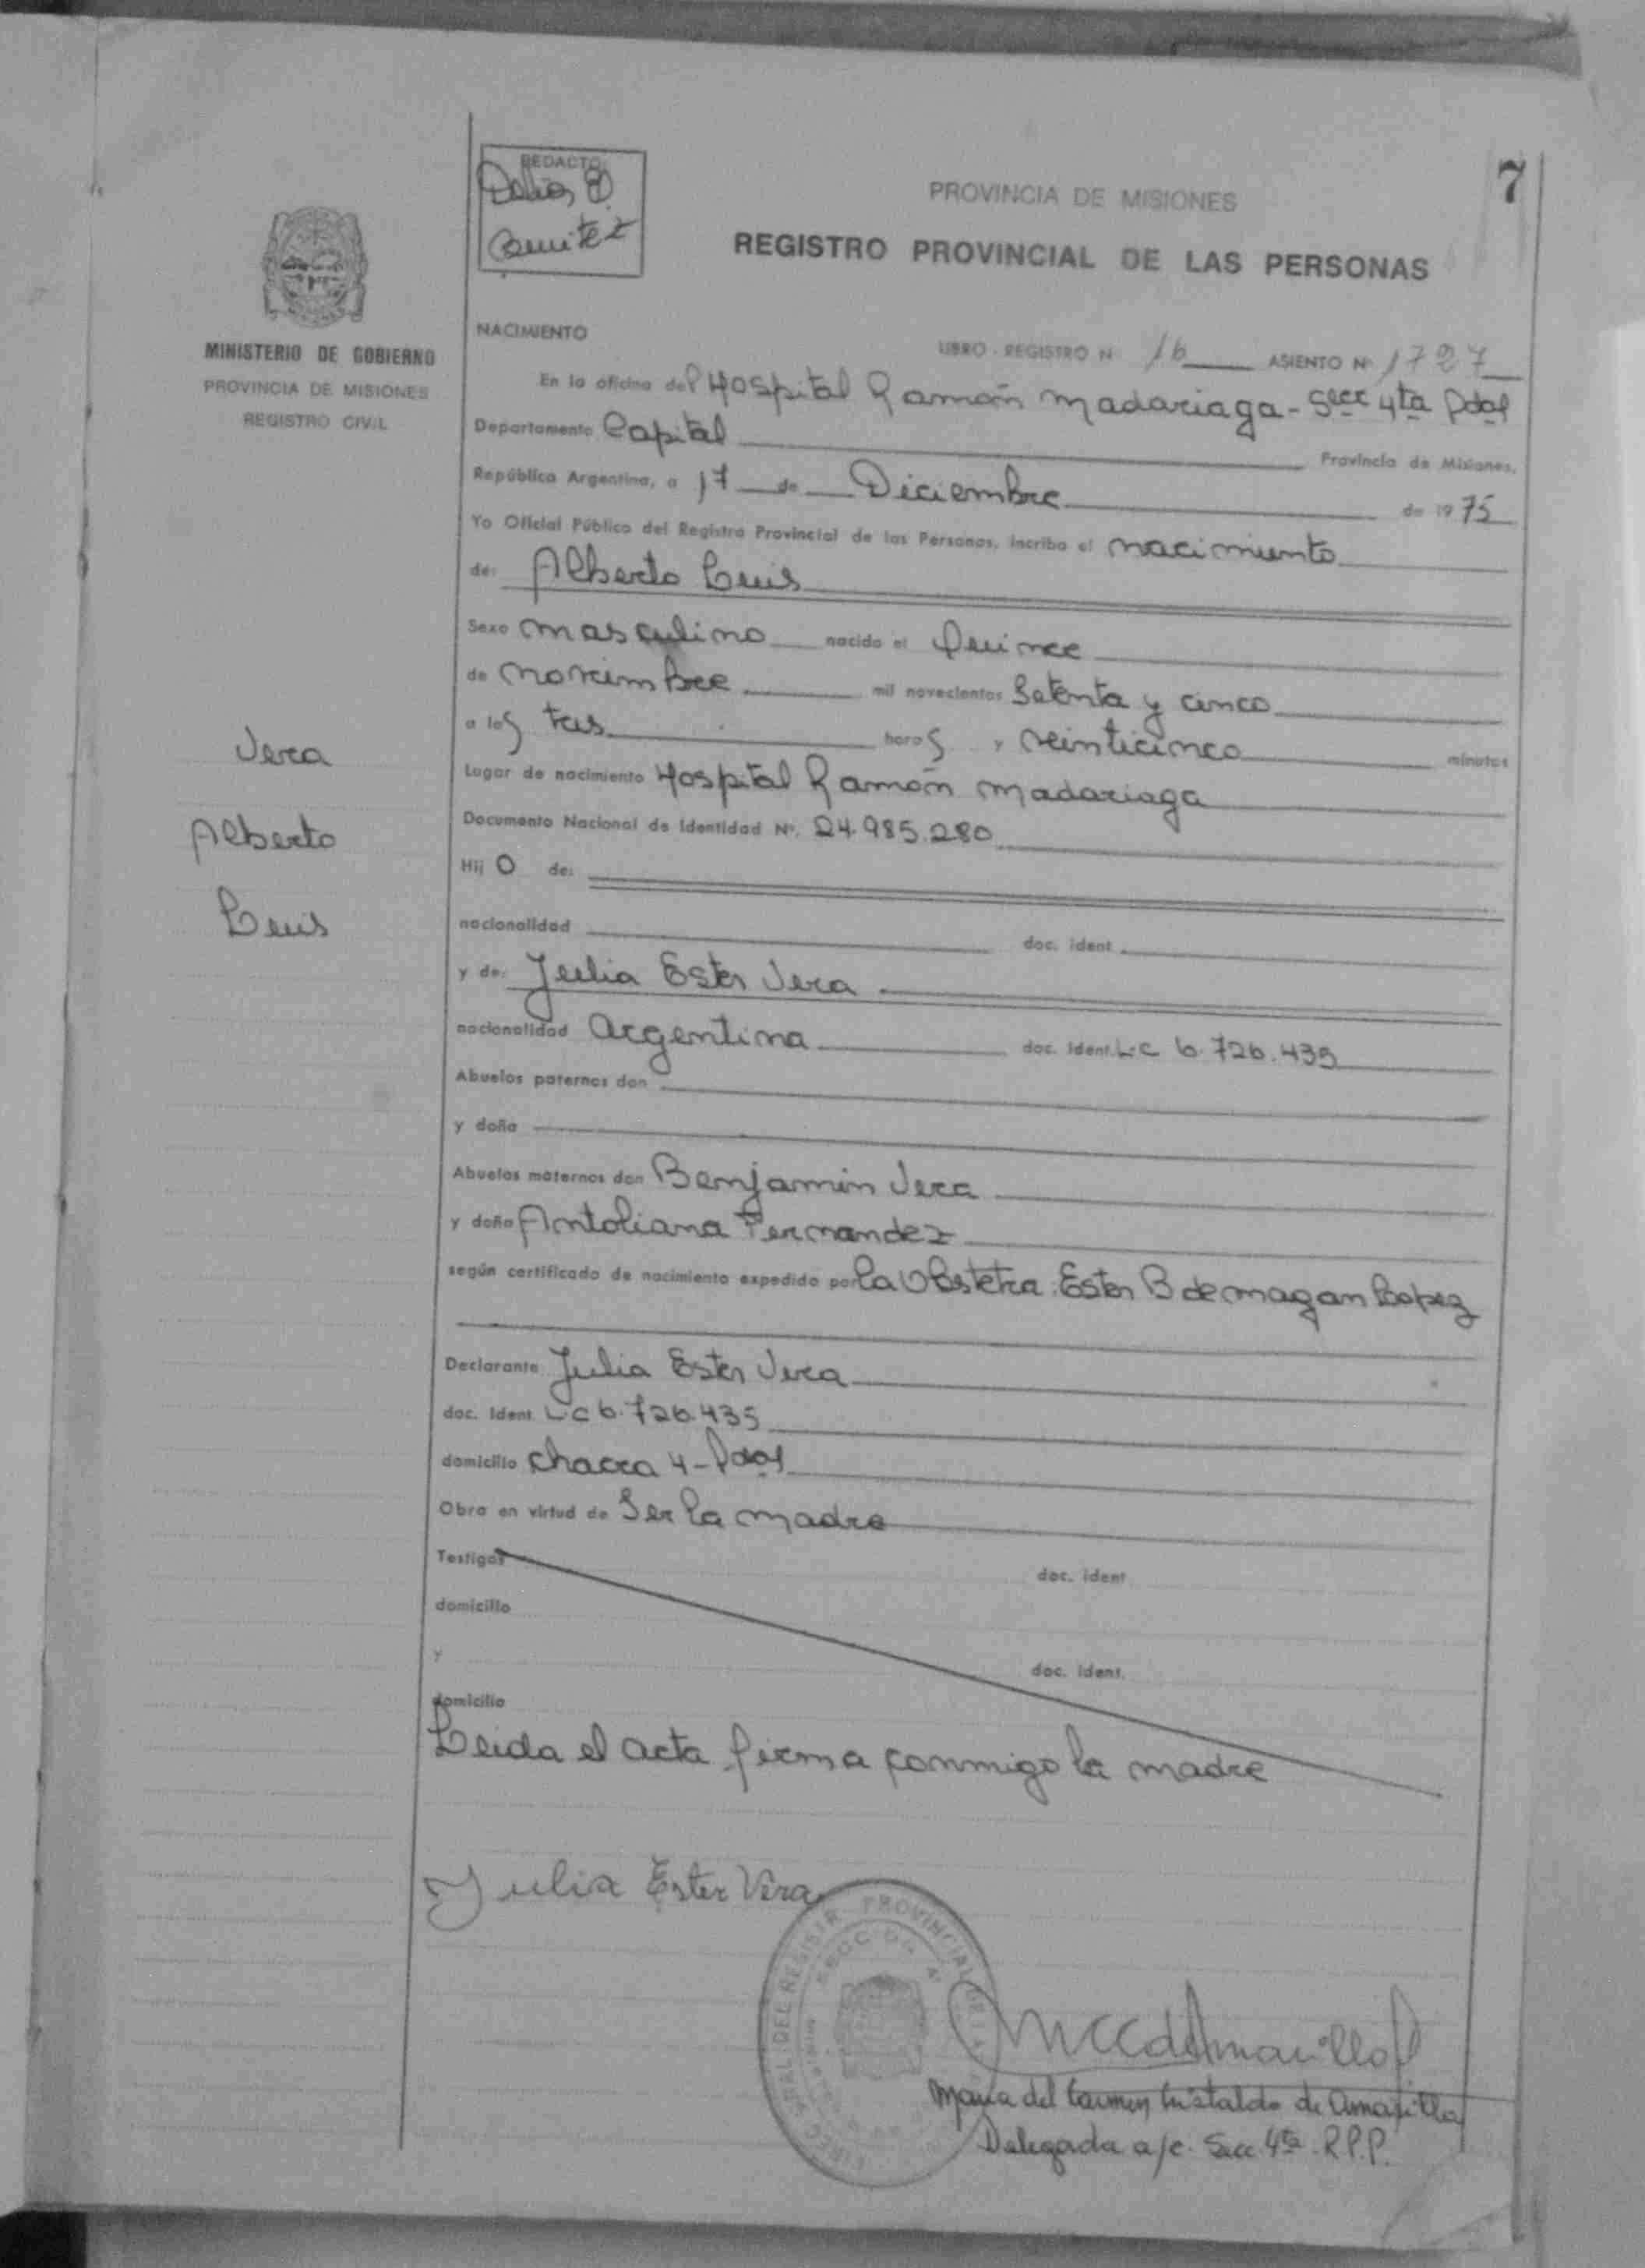 7
REDACTO:
Benitez
PROVINCIA DE MISIONES
REGISTRO PROVINCIAL DE LAS PERSONAS
MINISTERIO DE GOBIERNO
PROVINCIA DE MISIONES
REGISTRO CIVIL
Vera
Alberto
Luis
NACIMIENTO
LIBRO - REGISTRO Nº 16 ASIENTO Nº 1727
En la oficina del Hospital Ramón Madariaga - Secc 4ta Pdas
Departamento Capital Provincia de Misiones,
República Argentina, a 17 de Diciembre de 1975
Yo Oficial Público del Registro Provincial de las Personas, incribo el nacimiento
de: Alberto Luis
Sexo masculino nacido el Quince
de noviembre mil novecientos Setenta y cinco
a las tres horas y veinticinco minutos
Lugar de nacimiento Hospital Ramón Madariaga
Documento Nacional de Identidad Nº. 24.985.280
Hijo de:
nacionalidad doc. ident.
y de: Julia Ester Vera
nacionalidad argentina doc. ident. L.C 6.726.435
Abuelos paternos don
y doña
Abuelos maternos don Benjamin Vera
y doña Antoliana Fernandez
según certificado de nacimiento expedido por la Obstetra: Ester B de Magan Lopez
Declarante Julia Ester Vera
doc. Ident. L C 6.726.435
domicilio Chacra 4 - Pdas
Obra en virtud de Ser la madre
Testigos doc. ident
domicilio
y doc. ident.
domicilio
Leida el acta firma conmigo la madre
Julia Ester Vera
Maria del Carmen Cristaldo de Amarilla
Delegada a/c. Secc 4ta R.P.P.